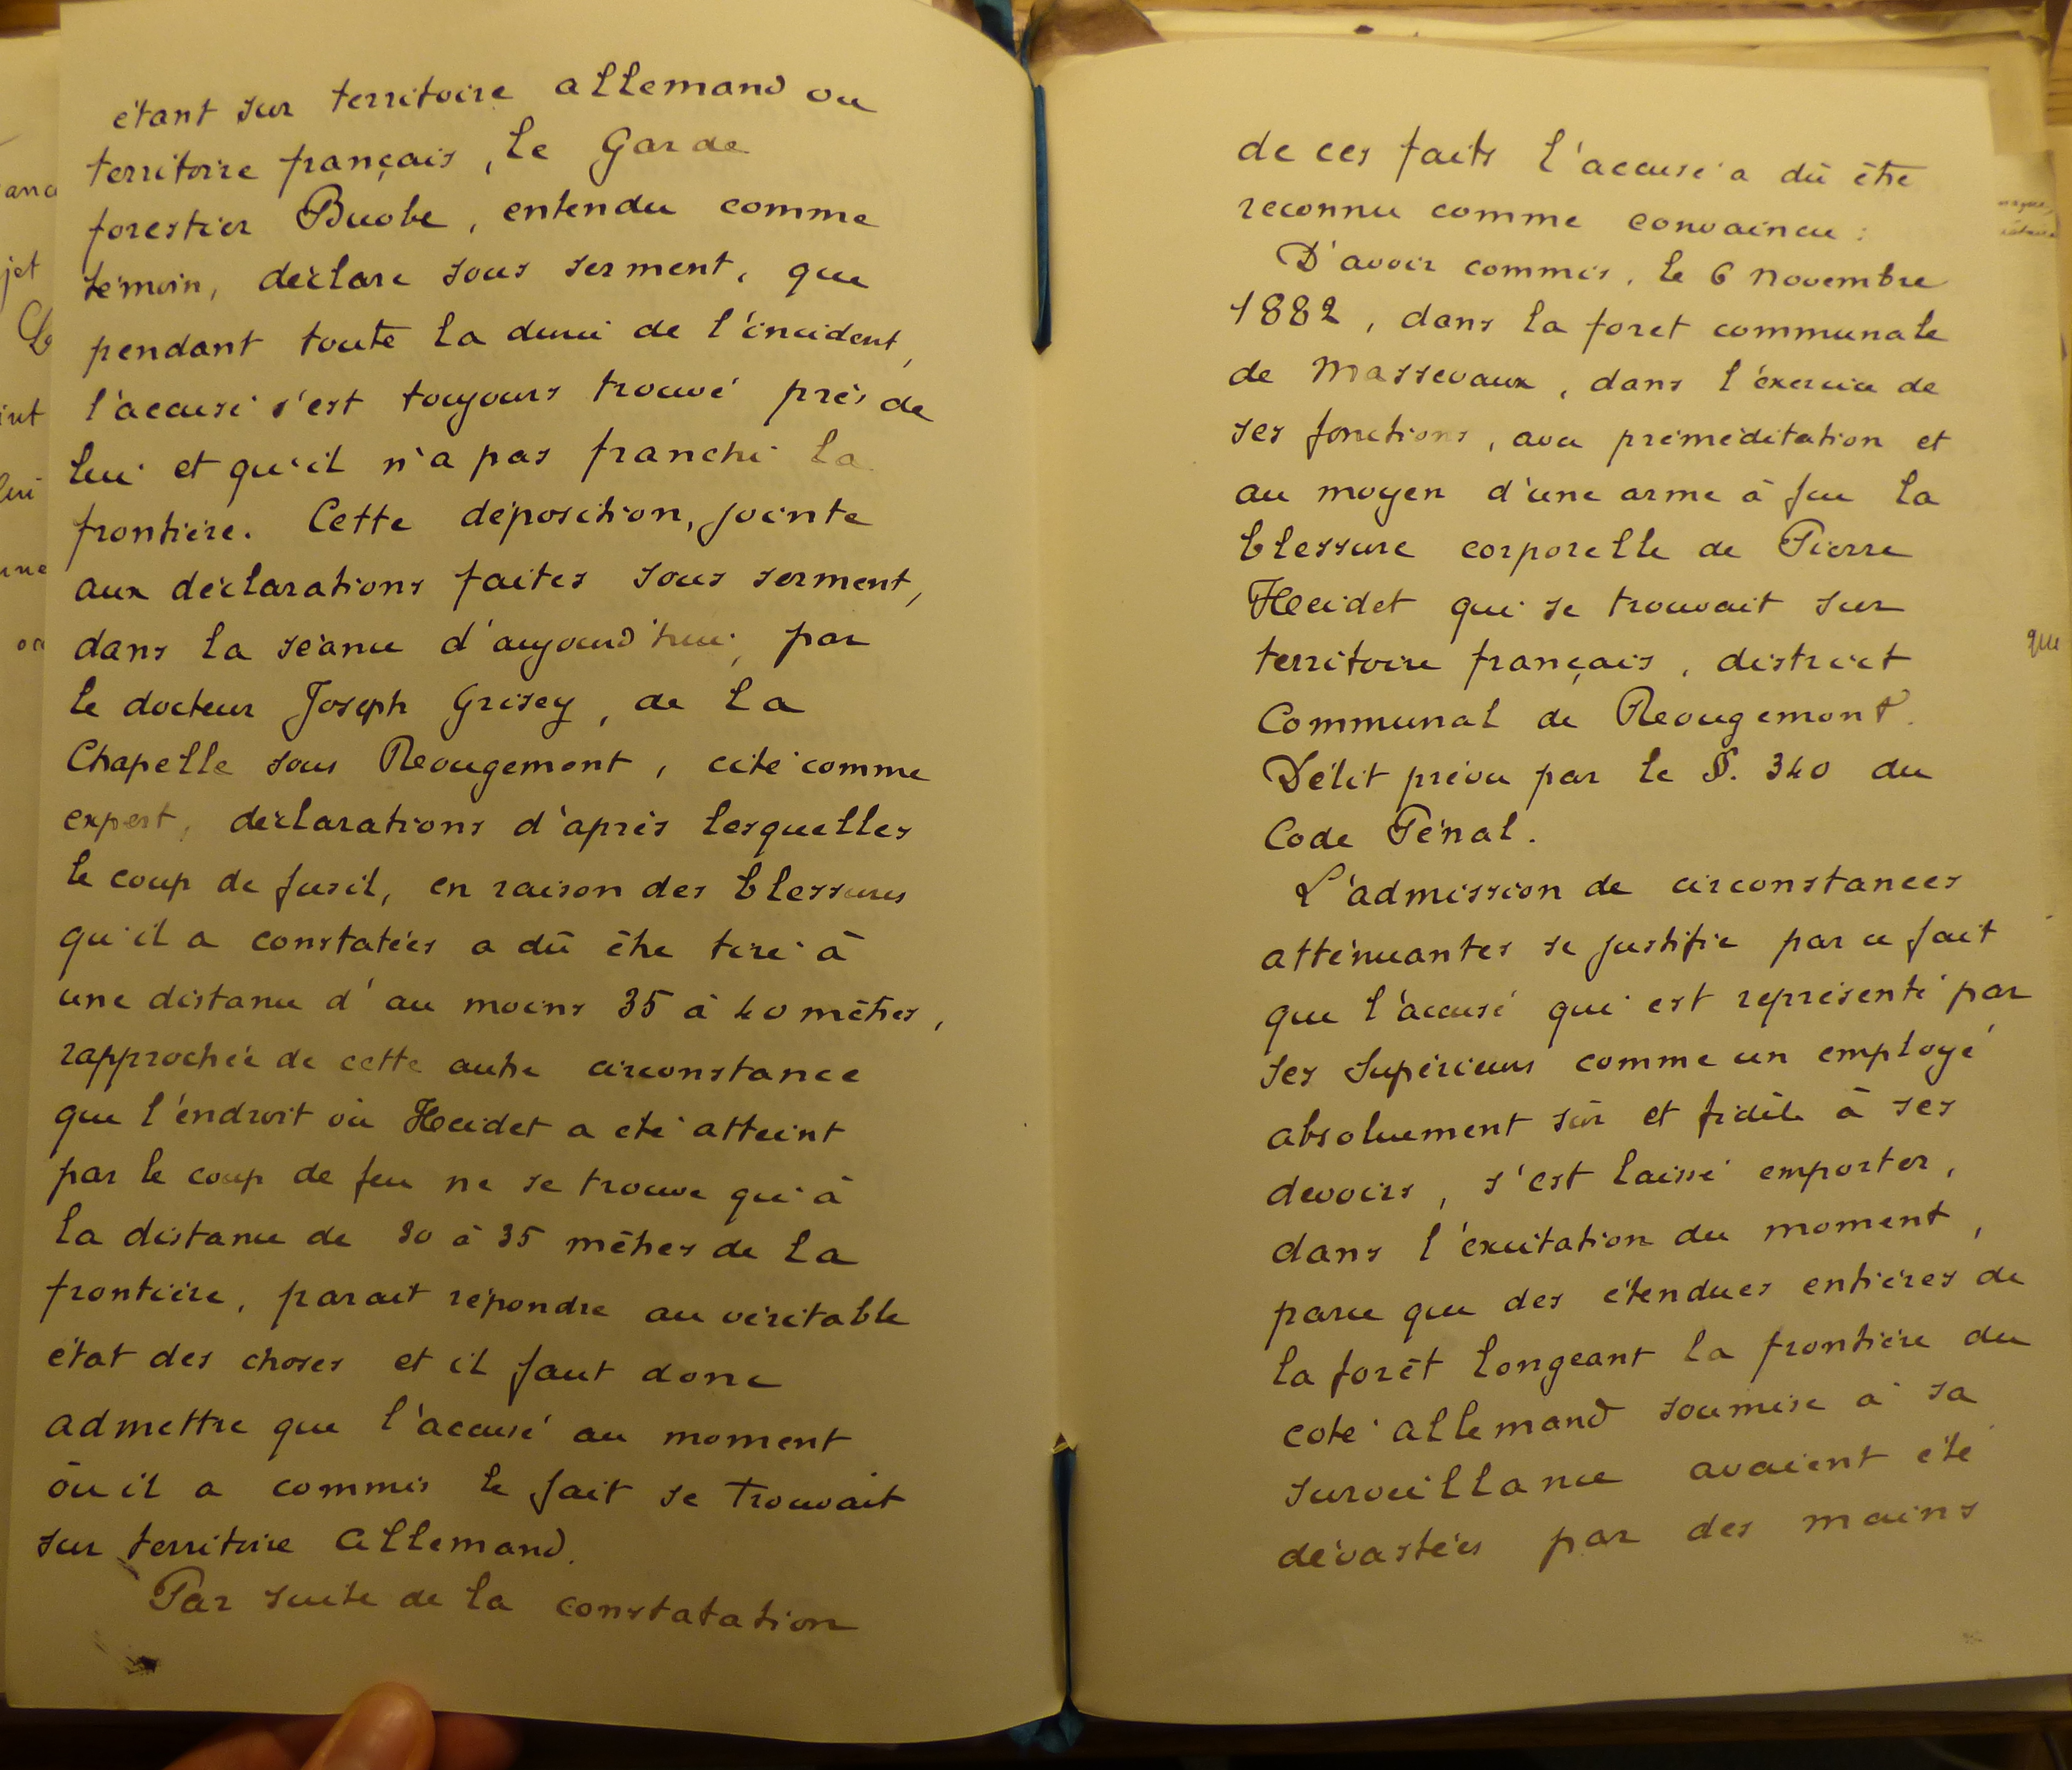 étant sur territoire allemand ou
territoire français, le Garde
forestier Buobe, entendu comme
témoin, déclare sous serment, que
pendant toute la durée de l'incident,
l'accusé s'est toujours trouvé près de
lui et qu'il n'a pas franchi la
frontière. Cette déposition, jointe
aux déclarations faites sous serment,
dans la séance d'aujourd'hui, par
le docteur Joseph Grisey, de La
Chapelle sous Rougemont, cité comme
expert, déclarations d'après lesquelles
le coup de fusil, en raison des blessures
qu'il a constatées a dû être tiré à
une distance d'au moins 35 à 40 mètres,
rapprochée de cette autre circonstance
que l'endroit où Heidet a été atteint
par le coup de feu ne se trouve qu'à
la distance de 30 à 35 mètres de la
frontière, parait répondre au véritable
état des choses et il faut donc
admettre que l'accusé au moment
où il a commis le fait se trouvait
sur territoire Allemand.
Par suite de la constatation
de ces faits l'accusé a dû être
reconnu comme convaincu :
D'avoir commis, le 6 novembre
1882, dans la foret communale
de Massevaux, dans l'éxercice de
ses fonctions, avec préméditation et
au moyen d'une arme à feu la
blessure corporelle de Pierre
Heidet qui se trouvait sur
territoire français, district
Communal de Rougemont.
Délit prévu par le §. 340 du
Code Pénal.
L'admission de circonstances
atténuantes se justifie par ce fait
que l'accusé qui est représenté par
ses supérieurs comme un employé
absoluement sûr et fidèle à ses
devoirs, s'est laissé emporter,
dans l'éxcitation du moment,
parce que des étendues entières de
la forêt longeant la frontière du
coté allemand soumise à sa
surveillance avaient été
dévastées par des mains
que